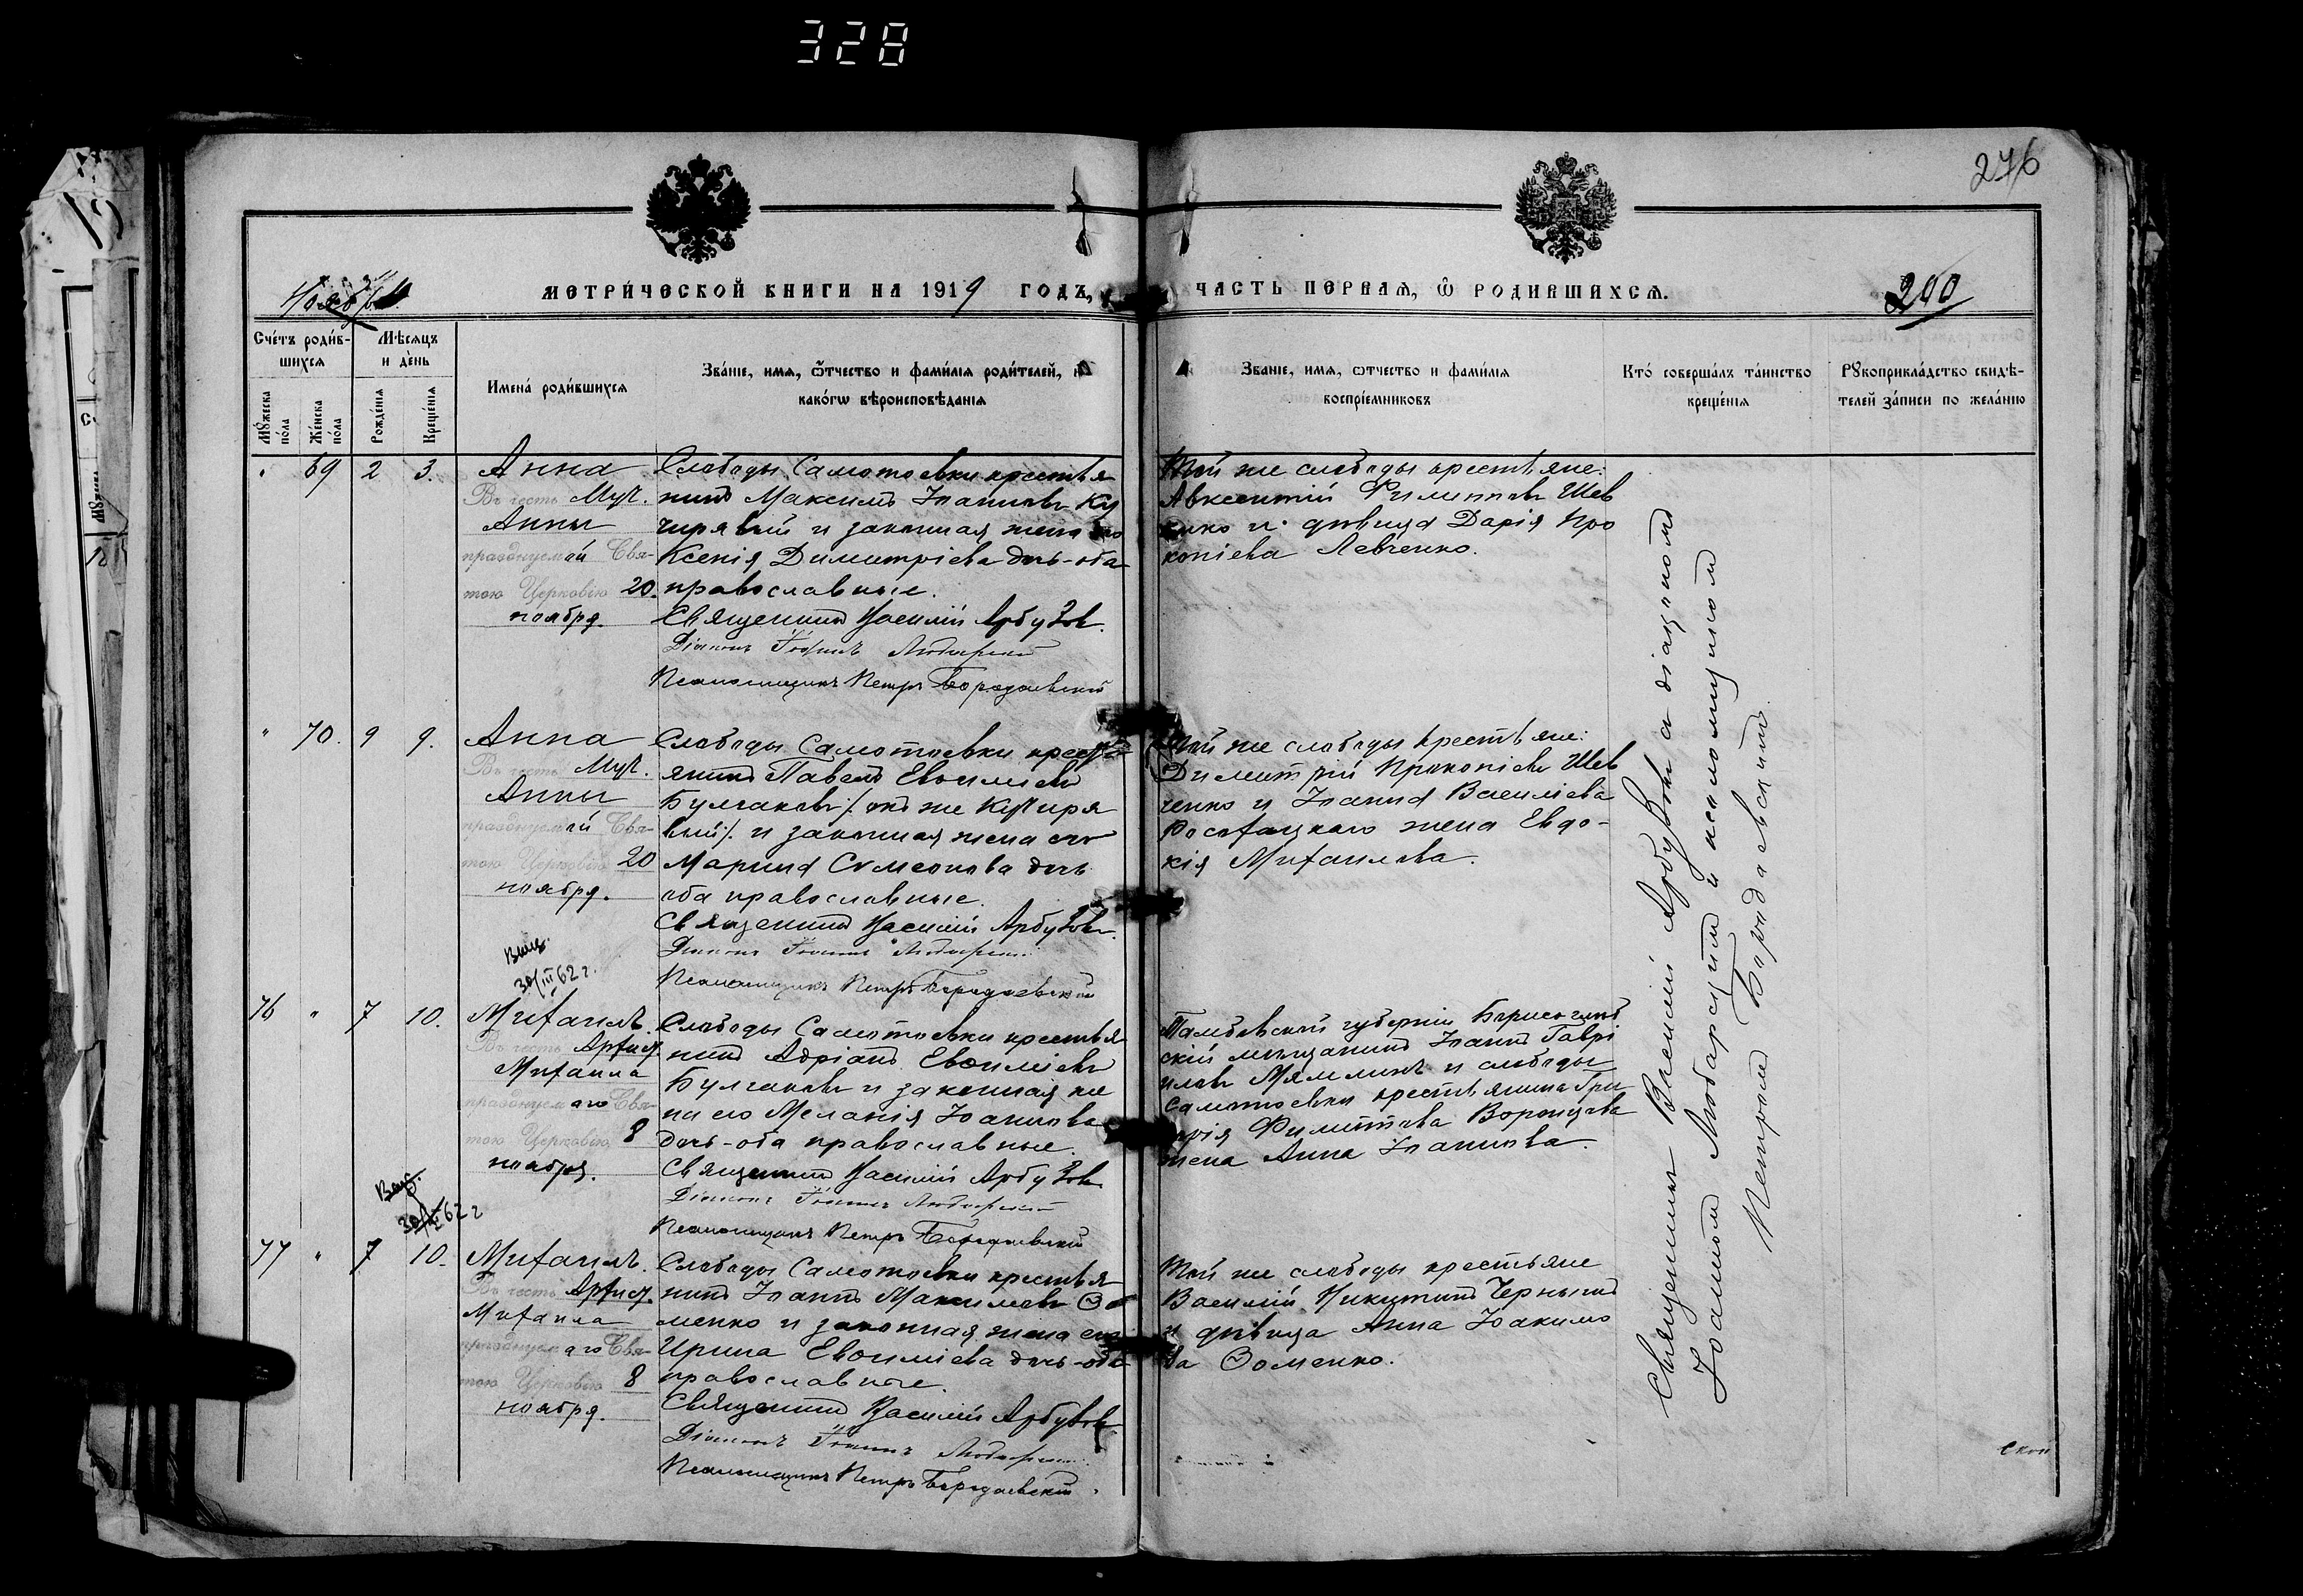 328
276
Ноябрь.
МЕТРИЧЕСКОЙ КНИГИ НА 1919 ГОДЪ,
ЧАСТЬ ПЕРВАЯ, Ѿ РОДИВШИХСЯ.
200
Счетъ родив-
шихся
Мѣсяцъ
и день
Мꙋжеска
пола
Женска
пола
Рожденія
Крещенія
Имена родившихся
Званіе, имя, ѿтчество и фамилія родителей, и
какогѡ вѣроисповѣданія
Званіе, имя, отчество и фамилія
воспріемниковъ
Кто совершалъ таинство
крещенія
Рꙋкоприкладство свидѣ-
телей записи по желанію
" 69 2 3.
Анна
Въ честь Муч.
Анны
празднуемой Свя-
тою Церковію 20
ноября.
Слободы Самотоевки крестья
нинъ Максимъ Іоанновъ Ку
чирявый и законная жена его
Ксенія Димитріева дочь-оба
православные.
Священникъ Василій Арбузовъ.
Діаконъ Іоаннъ Любарскій
Псаломщикъ Петръ Бородаевскій
Той же слободы крестьяне:
Авксентій Филипповъ Шев
ченко и дѣвица Дарія Про
копіева Левченко.
" 70. 9 9.
Анна
Въ честь Муч.
Анны
празднуемой Свя-
тою Церковію 20
ноября.
Слободы Самотоевки кресть
янинъ Павелъ Евѳиміевъ
Булгаковъ /: онъ же Кучиря
вый :/ и законная жена его
Марина Симеонова дочь
оба православные.
Священникъ Василій Арбузовъ.
Діаконъ Іоаннъ Любарскій
Псаломщикъ Петръ Бородаевскій
Той же слободы крестьяне:
Димитрій Прокопіевъ Шев
ченко и Іоанна Василіева
жена Евдо-
кія Михаилова.
30/III 62 г.
76 " 7 10.
Михаилъ.
Въ честь Архист.
Михаила
празднуемаго Свя-
тою Церковію 8
ноября.
Слободы Самотоевки крестья
нинъ Адріанъ Евѳиміевъ
Булгаковъ и законная же
на его Меланія Іоаннова
дочь-оба православные.
Священникъ Василій Арбузовъ
Діаконъ Іоаннъ Любарскій
Псаломщикъ Петръ Бородаевскій
Тамбовской губерніи Борисоглѣб
скій мѣщанинъ Іоаннъ Гаврі
иловъ и слободы
Самотоевки крестьянина Гри
горія Филиппова Воронцова
жена Анна Іоаннова.
77 " 7 10.
Михаилъ.
Въ честь Архист.
Михаила
празднуемаго Свя-
тою Церковію 8
ноября.
Слободы Самотоевки крестья
нинъ Іоаннъ Максимовъ Ѳо
менко и законная жена его
Ирина Евѳиміева дочь-оба
православные.
Священникъ Василій Арбузовъ
Діаконъ Іоаннъ Любарскій
Псаломщикъ Петръ Бородаевскій.
Той же слободы крестьяне
Василій Никитинъ Чернышъ
и дѣвица Анна Іоакимо
ва Ѳоменко.
Священникъ Василій Арбузовъ съ діакономъ
Іоанномъ Любарскимъ и псаломщикомъ
Петромъ Бородаевскимъ.